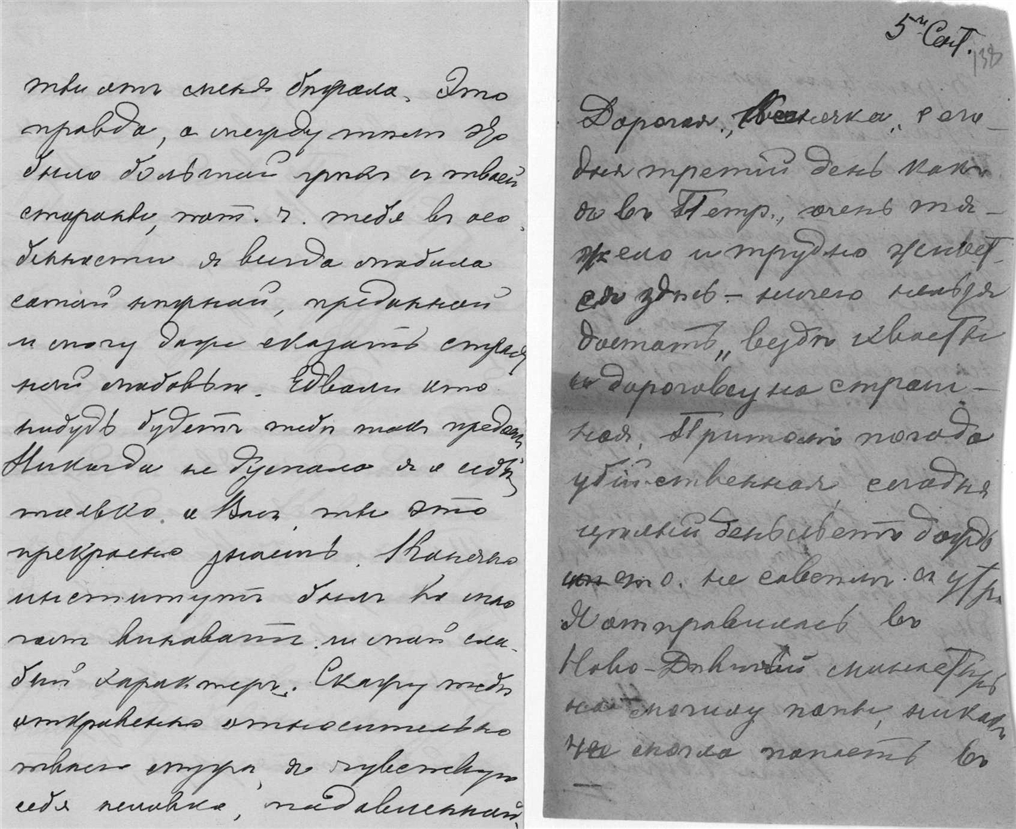 ты отъ меня брала. Это
правда, а между темъ это
было большой грехъ и твоей
стороны, пот. ч. тебя въ осо
бенности я всегда любила
самой нежной, преданной
и могу даже сказать страст
ной любовью. Едвали кто
нибудь будетъ тебе такъ преданъ
Никогда не думала я о себе
только о Васъ, ты это
прекрасно знаешь. Конечно
институтъ былъ во мно
гомъ виноватъ и мой сла-
бый характеръ. Скажу тебе
откровенно относительно
твоего мужа, я чувствую
себя неловко, подавленной,
5го Сент.
138
Дорогая, сего-
дня третiй день какъ
я въ Петр., очень тя-
жело и трудно живет-
ся здесь – ничего нельзя
достать, везде хвосты
и дороговизна страш-
ная. Притомъ погода
убiйственная, сегодня
целый день льетъ дождь
не советь. съ утра
Я отправилась въ
Ново-Девичiй монастырь
на могилу папы, никакъ
не могла попасть въ